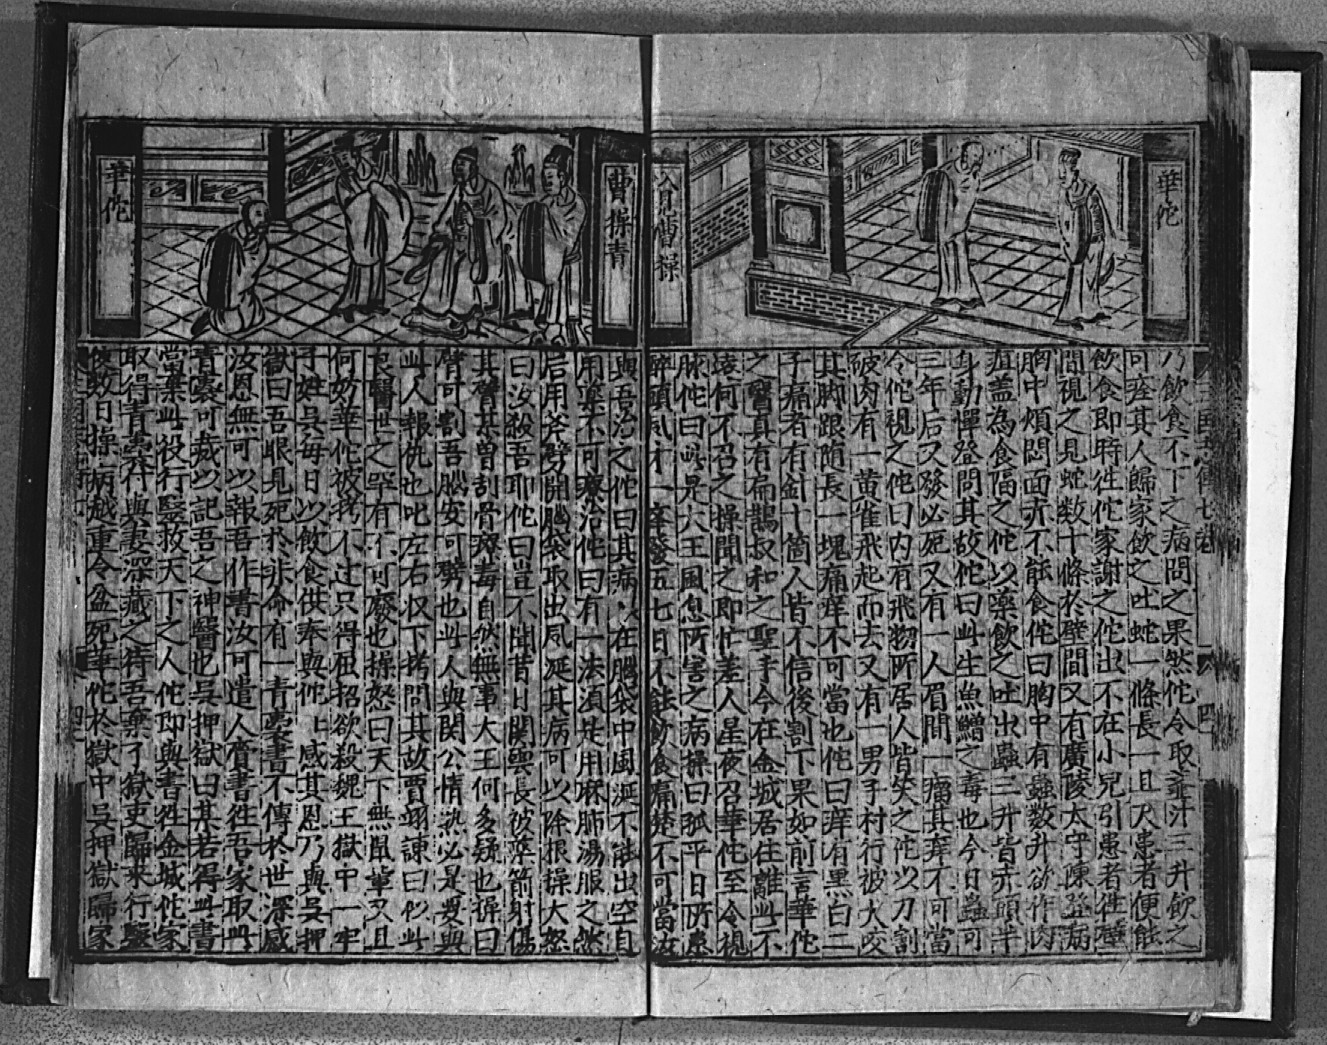 華佗
入見曹操
乃飲食不下之病問之果然佗令取虀汁三升飲之
可痊其人歸家飲之吐蛇一條長一且大患者便能
飲食即時徃佗家謝之佗出不在小兒引患者徃壁
間視之見蛇数十條於壁間又有廣陵太守陳登病
胸中煩悶面赤不能食佗曰胸中有蟲数升欲作内
疽盖為食隔之佗以藥飲之吐出蟲三升皆赤頭半
身動憚登問其故佗曰此生魚鱠之毒也今日蟲可
三年后又發必死又有一人眉間一瘤其痒不可當
令佗視之佗曰内有飛物所居人皆笑之佗以刀割
破肉有一黄雀飛起而去又有一男子村行被犬咬
其脚跟随長一塊痛痒不可當也佗曰痒有黒白二
子痛者有針十箇人皆不信後割下果如前言華佗
之醫真有扁鵲叔和之聖手今在金城居住離此不
遠何不召之操聞之即忙差人星夜召華佗至令視
脉佗曰此是大王風息所害之病操曰孤平日所患
醉頭風才一舉發五七日不能飲食痛楚不可當汝
曹操青
華佗
與吾治之佗曰其病以在腦袋中風涎不能出空自
用藥不可療治佗曰有一法須是用麻肺湯服之然
后用斧劈開腦袋取出風涎其病可以除根操大怒
曰汝殺吾耶佗曰豈不聞昔日関雲長被藥箭射傷
其臂某曽刮骨療毒自然無事大王何多疑也操曰
臂可割吾腦安可劈也此人與関公情熟必是要與
此人報仇也叱左右収下拷問其故賈詡諌曰似此
良醫世之罕有不可廢也操怒曰天下無鼠輩又且
何妨華佗被拷不过只得屈招欲殺魏王獄中一牢
子姓呉每日以飲食供奉與佗上感其恩乃與呉押
獄曰吾眼見死於非命有一青囊書不傳於世深感
汝恩無可以報吾作書汝可遣人賫書徃吾家取此
青囊可藏以記吾之神醫也呉押獄曰某若得此書
當棄此役行醫救天下之人佗即與書徃金城佗家
取得青囊符與妻深藏之待吾棄了獄吏歸来行醫
後数日操病越重令盆死華佗於獄中呉押獄歸家